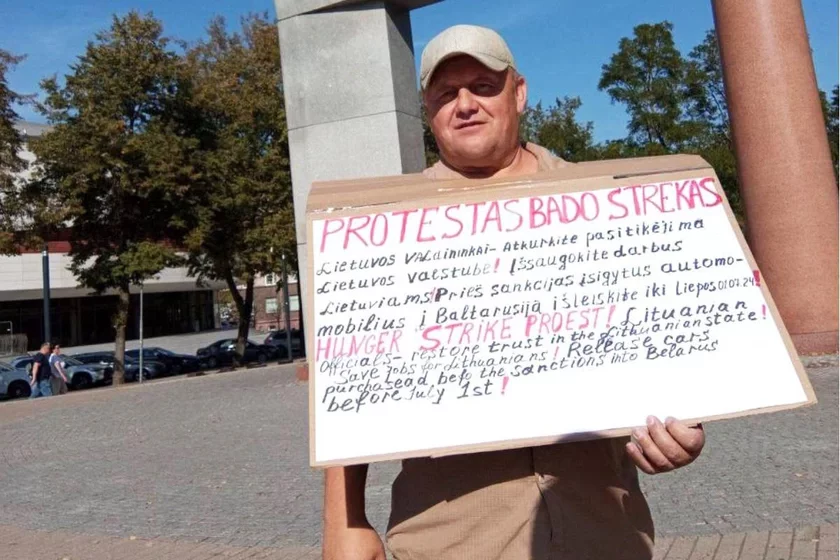 PROTESTAS BADO STREKAS
LIETUVOS VALDININKAI - ATKURKITE PASITIKĖJIMĄ
LIETUVOS VALSTUBE! IŠSAUGOKITE DARBUS
LIETUVIAMS! PRIEŠ SANKCIJAS ĮSIGYTUS AUTOMO-
MOBILIUS Į BALTARUSIJĄ IŠLEISKITE IKI LIEPOS 01.07.24!
HUNGER STRIKE PROEST! LITUANIAN
OFFICIALS - restore trust in the Lithuanian state!
Save jobs for Lithuanians! Release cars
purchasead befo the sanctions into Belarus
before July 1st!